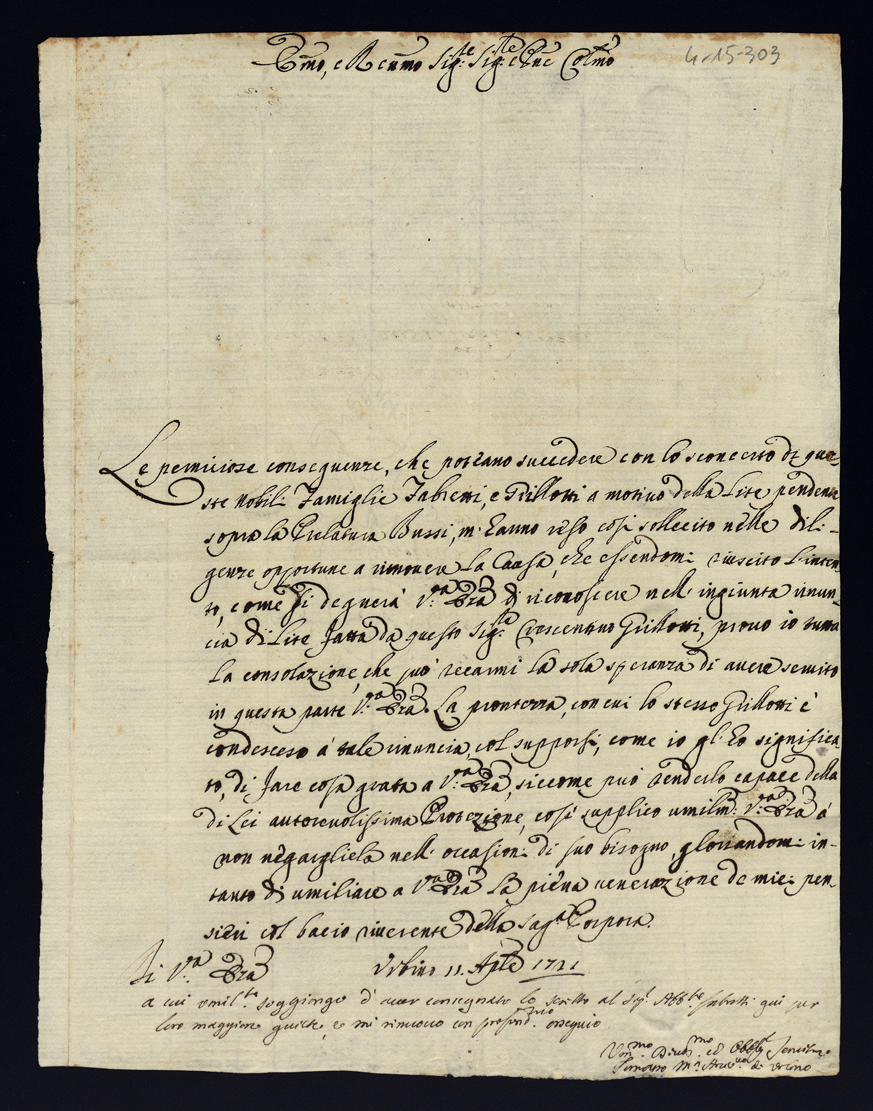 Emo, e Reumo Sig:re Sig:re e Pne Colmo
4-15-303
Le perniciose conseguenze, che poteano succedere con lo sconcerto di que-
ste nobili Famiglie Fabretti, e Grillotti a motivo della Lite pendente
sopra la Prelatura Bussi, m'hanno reso così sollecito nelle dili-
genze opportune a rimovere la Causa, che essendomi riuscito l'inten-
to, come si degnerà V.ra Em̃za di riconoscere nell'ingiunta rinun-
cia di Lite fatta da questo Sig.re Crescentino Grillotti, provo io tutta
la consolazione, che può recarmi la sola speranza di avere servito
in questa parte V.ra Em̃za. La prontezza, con cui lo stesso Grillotti è
condesceso à tale rinuncia, col supporsi, come io gl'ho significa-
to, di fare cosa grata a V.ra Em̃za, siccome può renderlo capace della
di Lei autorevolissima Protezione, così supplico umilm: V.ra Em̃za à
non negargliela nell'occasioni di suo bisogno, gloriandomi in-
tanto di umiliare a V.ra Em̃za la piena venerazione de miei pen-
sieri col bacio riverente della Sag.a Porpora.
Di V.ra Em̃za Urbino 11. Aple 1721
a cui umil.te soggiungo d'aver consegnato lo scritto al Sig.r Abb.te Fabretti qui per
loro maggior quiete, e mi rinuovo con profond.mo ossequio
Um.mo Divot.mo ed Obblg.mo Servitore
M.a Arciv.vo di Urbino